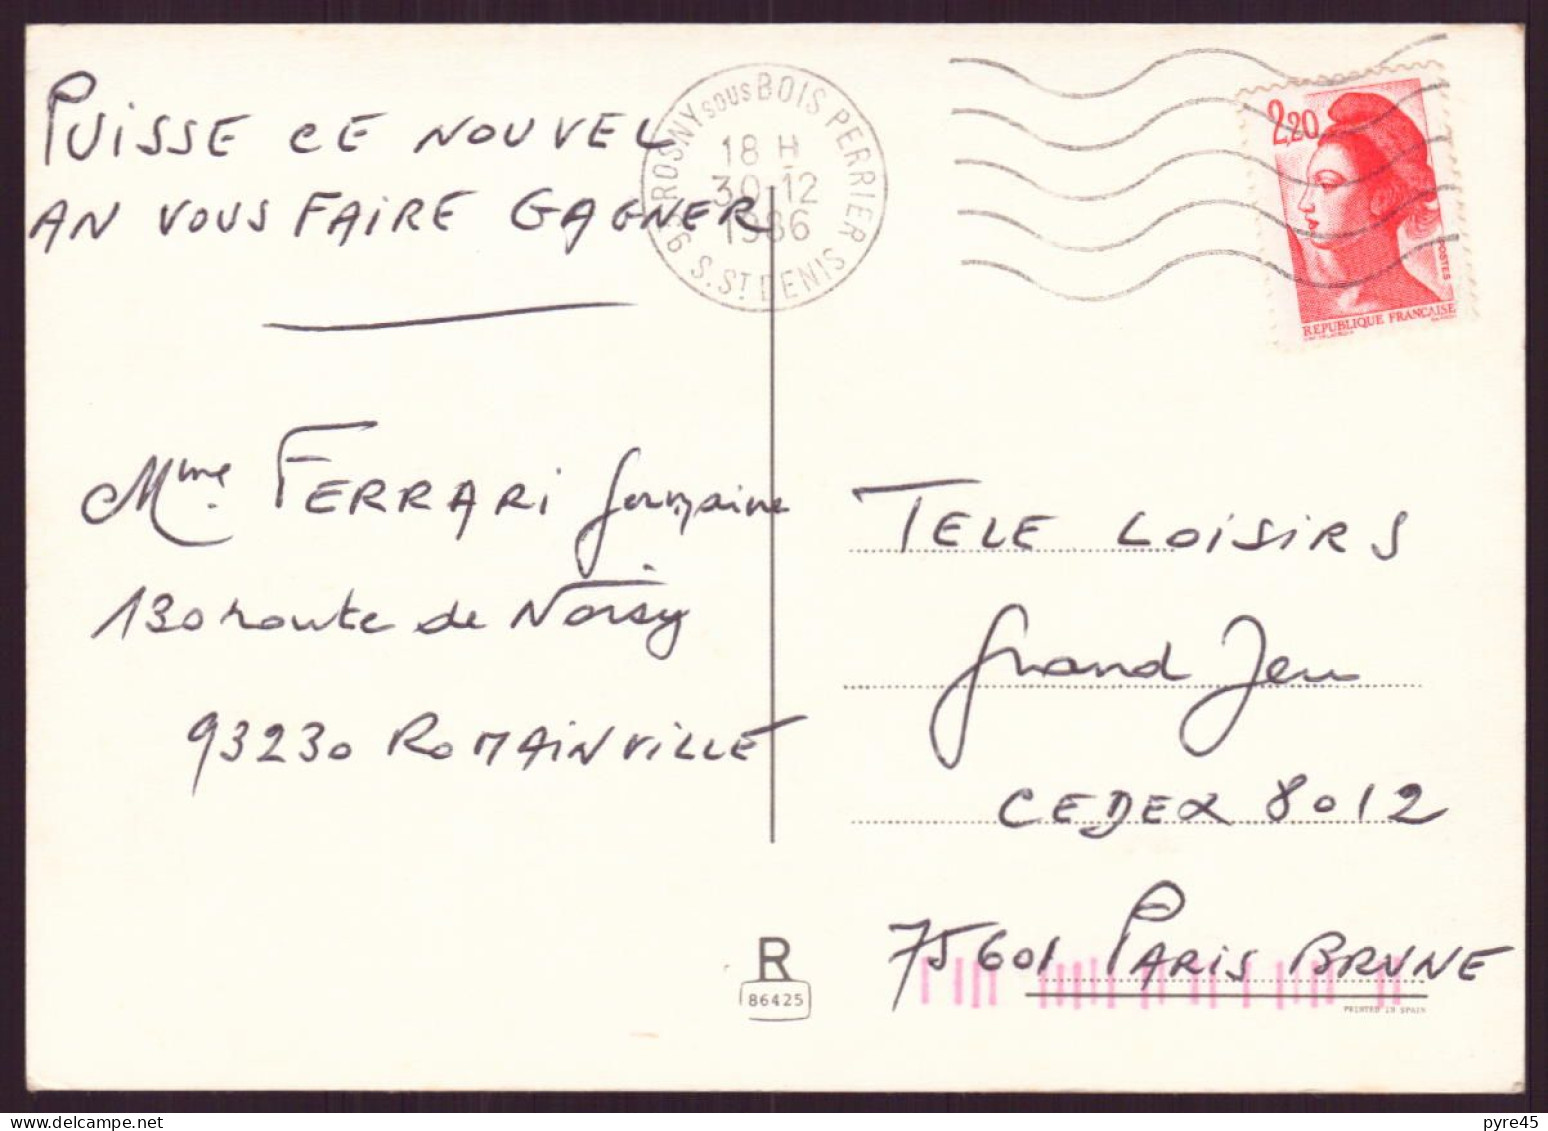 PUISSE CE NOUVEL
AN VOUS FAIRE GAGNER
Mme. FERRARI Germaine
130 route de Noisy
93230 ROMAINVILLE
ROSNY sous BOIS PERRIER
18 H
30-12
1986
S. ST DENIS
2,20
POSTES
REPUBLIQUE FRANCAISE
TELE LOISIRS
Grand Jeu
CEDEX 8012
75601 PARIS BRUNE
R
86425
PRINTED IN SPAIN
pyre45